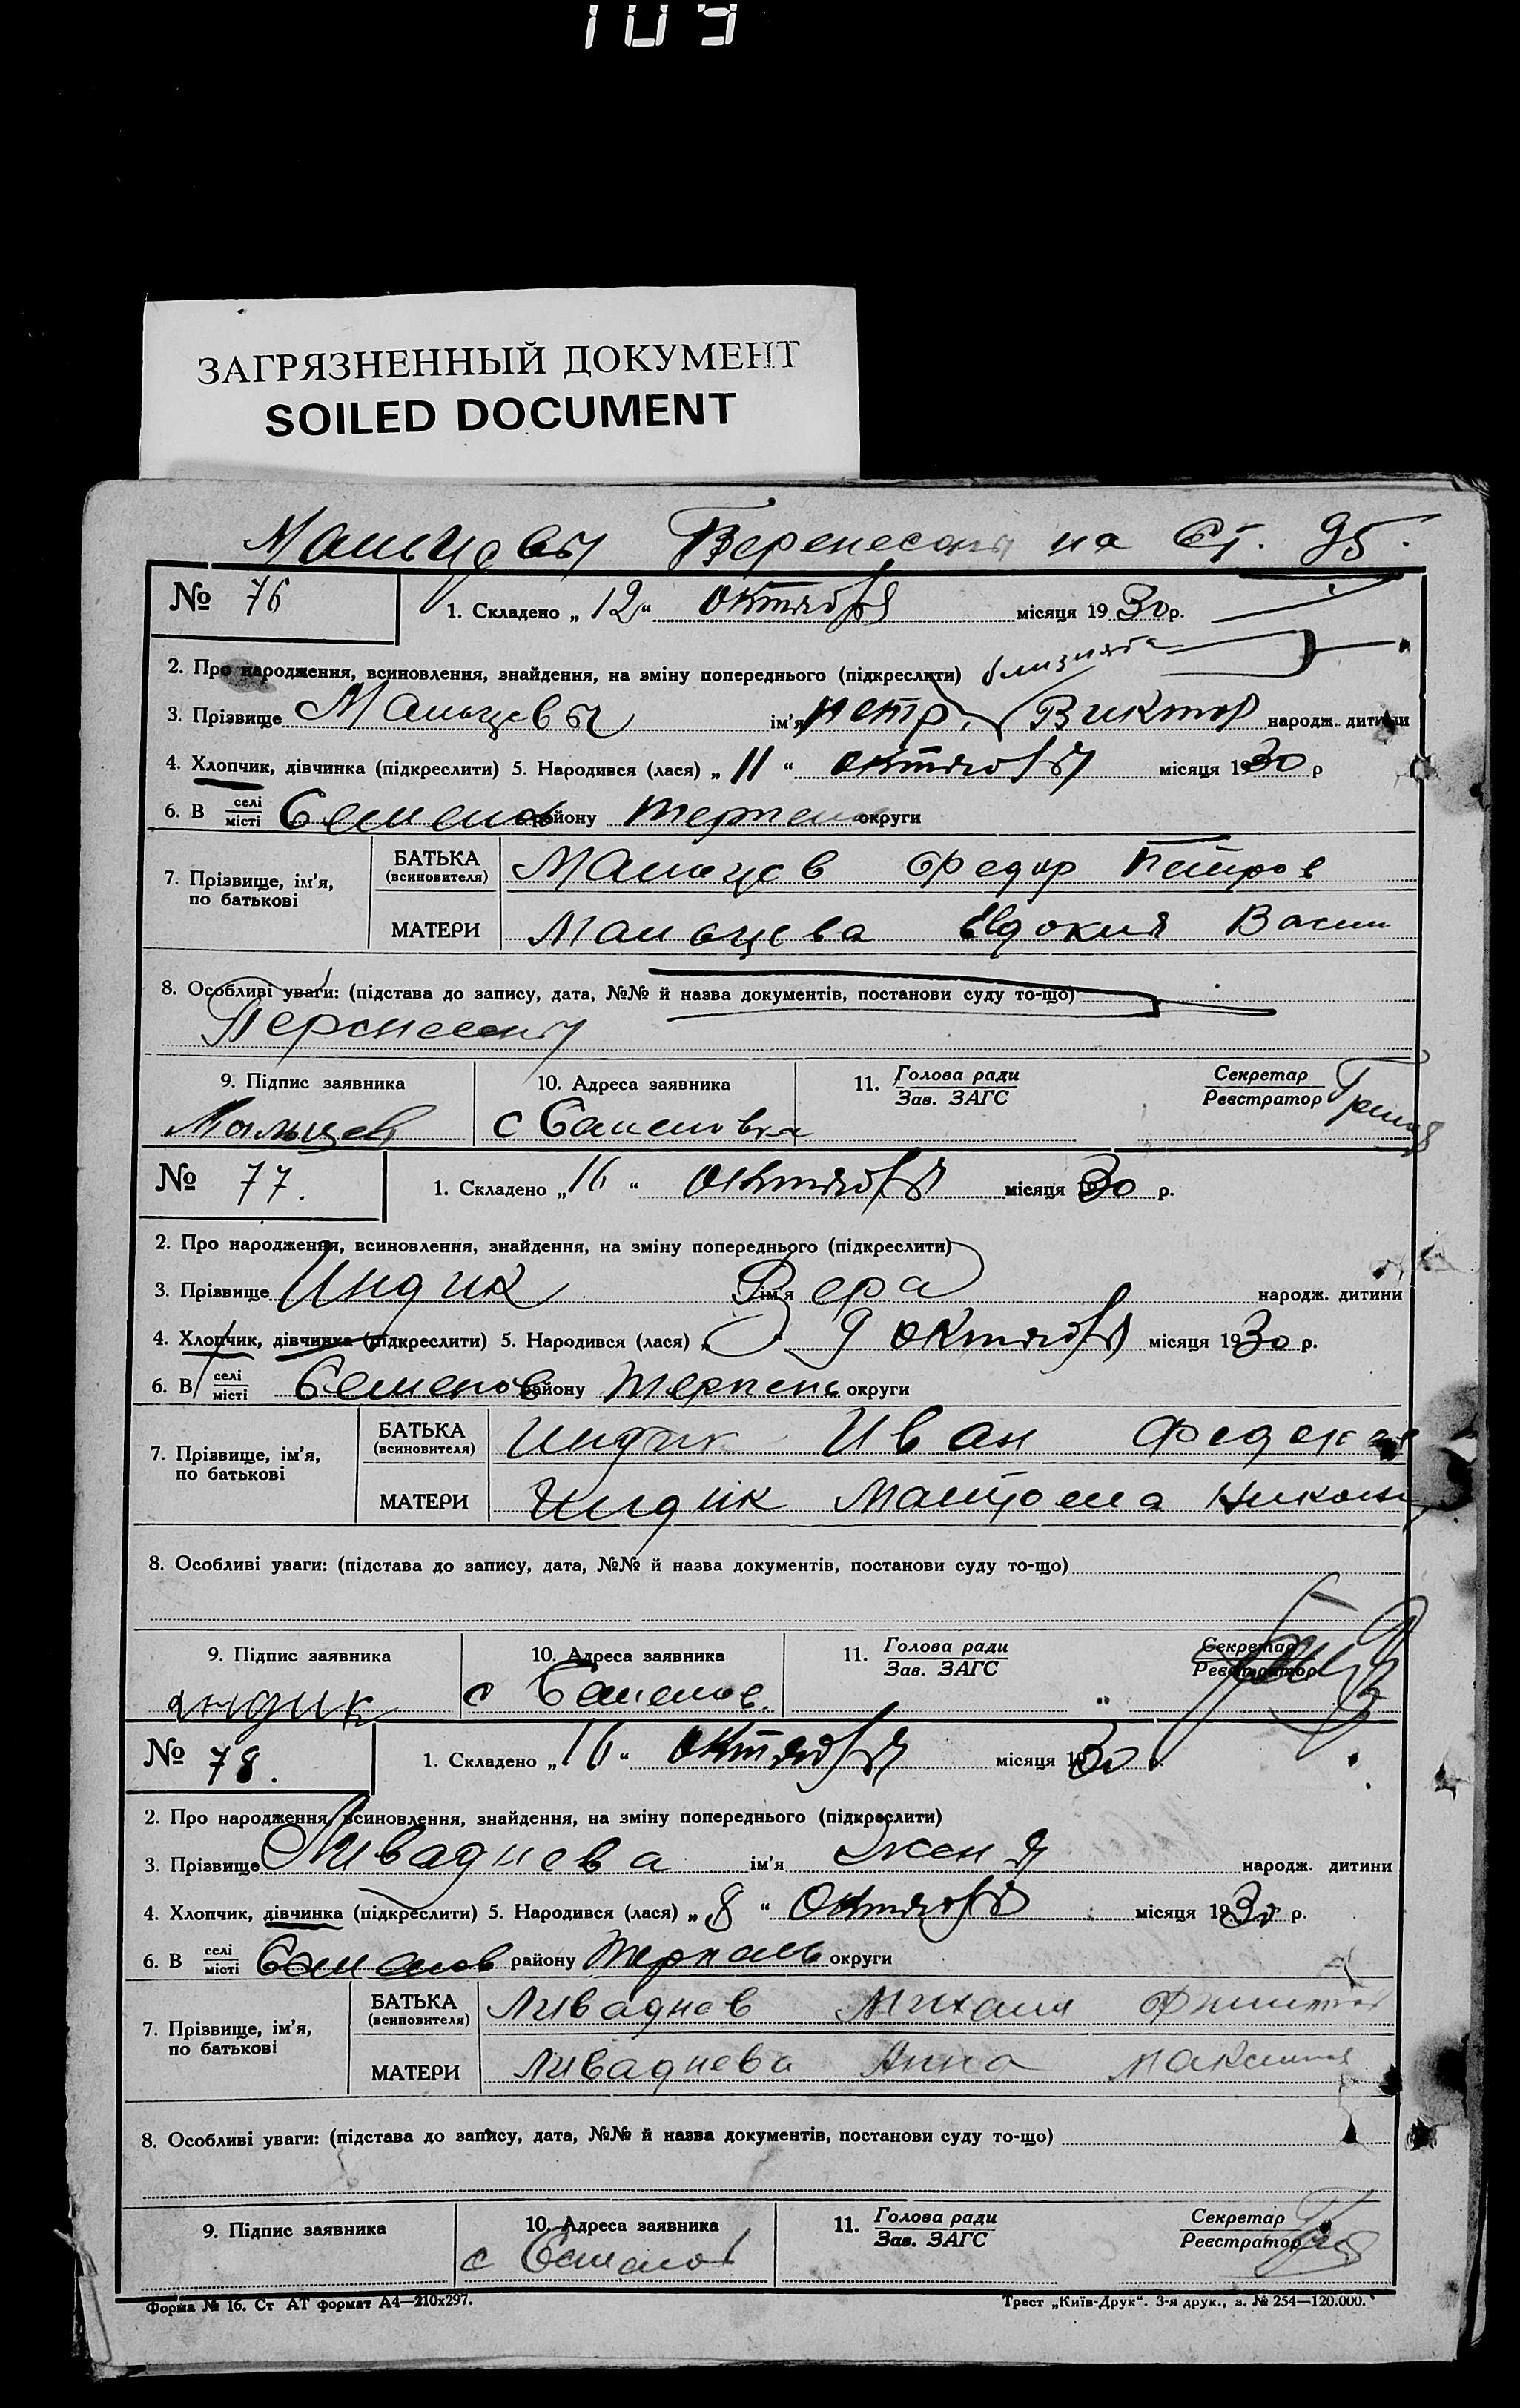 109
ЗАГРЯЗНЕННЫЙ ДОКУМЕНТ
SOILED DOCUMENT
Мальцевы на Ст. 95.
№ 76
1. Складено „12“ октября місяця 1930 р.
2. Про народження, всиновлення, знайдення, на зміну попереднього (підкреслити) близнята
3. Прізвище Мальцевы ім'я Петр. Виктор народж. дитини
4. Хлопчик, дівчинка (підкреслити) 5. Народився (лася) „11“ октября місяця 1930 р
6. В селі місті Семенов району Терпень округи
7. Прізвище, ім'я, по батькові
БАТЬКА (всиновителя) Мальцев Федор Петров
МАТЕРИ Мальцева Евдокия Васил
8. Особливі уваги: (підстава до запису, дата, №№ й назва документів, постанови суду то-що)
Перенесены
9. Підпис заявника 10. Адреса заявника 11. Голова ради Зав. ЗАГС Секретар Реєстратор
Мальцев с Семеновка
№ 77.
1. Складено „16“ октября місяця 1930 р.
2. Про народження, всиновлення, знайдення, на зміну попереднього (підкреслити)
3. Прізвище Индик ім'я Вера народж. дитини
4. Хлопчик, дівчинка (підкреслити) 5. Народився (лася) „ 9 октября місяця 1930 р.
6. В селі місті Семенов району Терпень округи
7. Прізвище, ім'я, по батькові
БАТЬКА (всиновителя) Индик Иван
МАТЕРИ Индик
8. Особливі уваги: (підстава до запису, дата, №№ й назва документів, постанови суду то-що)
9. Підпис заявника 10. Адреса заявника 11. Голова ради Зав. ЗАГС Секретар Реєстратор
индик с Семенов.
№ 78.
1. Складено „16“ октября місяця 1930 р.
2. Про народження, всиновлення, знайдення, на зміну попереднього (підкреслити)
3. Прізвище Ливаднева ім'я Женя народж. дитини
4. Хлопчик, дівчинка (підкреслити) 5. Народився (лася) „8“ Октября місяця 1930 р.
6. В селі місті Семенов району Терпень округи
7. Прізвище, ім'я, по батькові
БАТЬКА (всиновителя) Ливаднев Михаил
МАТЕРИ Ливаднева Анна
8. Особливі уваги: (підстава до запису, дата, №№ й назва документів, постанови суду то-що)
9. Підпис заявника 10. Адреса заявника 11. Голова ради Зав. ЗАГС Секретар Реєстратор
с Семенов
Форма № 16. Ст АТ формат А4—210х297. Трест „Київ-Друк“. 3-я друк., з. № 254—120.000.